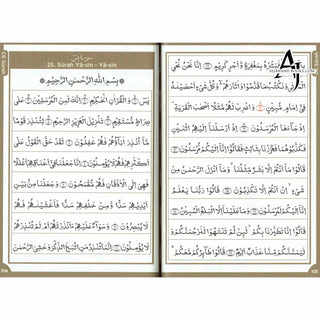 سورة يس
25. Sūrah Yā-sīn - Yā-sīn
بِسْمِ اللَّهِ الرَّحْمٰنِ الرَّحِيمِ
يٰسٓ ۝ وَالْقُرْاٰنِ الْحَكِيمِ ۝ إِنَّكَ لَمِنَ الْمُرْسَلِينَ ۝ عَلٰى
صِرَاطٍ مُّسْتَقِيمٍ ۝ تَنْزِيلَ الْعَزِيزِ الرَّحِيمِ ۝ لِتُنْذِرَ قَوْمًا
مَّا أُنْذِرَ اٰبَاؤُهُمْ فَهُمْ غٰفِلُونَ ۝ لَقَدْ حَقَّ الْقَوْلُ عَلٰى
أَكْثَرِهِمْ فَهُمْ لَا يُؤْمِنُونَ ۝ إِنَّا جَعَلْنَا فِي أَعْنَاقِهِمْ أَغْلٰلًا
فَهِيَ إِلَى الْأَذْقَانِ فَهُمْ مُّقْمَحُونَ ۝ وَجَعَلْنَا مِنْ بَيْنِ
أَيْدِيهِمْ سَدًّا وَّمِنْ خَلْفِهِمْ سَدًّا فَأَغْشَيْنٰهُمْ فَهُمْ
لَا يُبْصِرُونَ ۝ وَسَوَاءٌ عَلَيْهِمْ ءَأَنْذَرْتَهُمْ أَمْ لَمْ تُنْذِرْهُمْ
لَا يُؤْمِنُونَ ۝ إِنَّمَا تُنْذِرُ مَنِ اتَّبَعَ الذِّكْرَ وَخَشِيَ الرَّحْمٰنَ
104
بِالْغَيْبِ فَبَشِّرْهُ بِمَغْفِرَةٍ وَّأَجْرٍ كَرِيمٍ ۝ إِنَّا نَحْنُ نُحْيِ
الْمَوْتٰى وَنَكْتُبُ مَا قَدَّمُوا وَاٰثَارَهُمْ وَكُلَّ شَيْءٍ أَحْصَيْنٰهُ
فِي إِمَامٍ مُّبِينٍ ۝ وَاضْرِبْ لَهُمْ مَّثَلًا أَصْحٰبَ الْقَرْيَةِ
إِذْ جَاءَهَا الْمُرْسَلُونَ ۝ إِذْ أَرْسَلْنَا إِلَيْهِمُ اثْنَيْنِ
فَكَذَّبُوهُمَا فَعَزَّزْنَا بِثَالِثٍ فَقَالُوا إِنَّا إِلَيْكُمْ مُّرْسَلُونَ ۝
قَالُوا مَا أَنْتُمْ إِلَّا بَشَرٌ مِّثْلُنَا وَمَا أَنْزَلَ الرَّحْمٰنُ مِنْ
شَيْءٍ إِنْ أَنْتُمْ إِلَّا تَكْذِبُونَ ۝ قَالُوا رَبُّنَا يَعْلَمُ
إِنَّا إِلَيْكُمْ لَمُرْسَلُونَ ۝ وَمَا عَلَيْنَا إِلَّا الْبَلٰغُ الْمُبِينُ ۝
قَالُوا إِنَّا تَطَيَّرْنَا بِكُمْ لَئِنْ لَّمْ تَنْتَهُوا لَنَرْجُمَنَّكُمْ
وَلَيَمَسَّنَّكُمْ مِّنَّا عَذَابٌ أَلِيمٌ ۝ قَالُوا طَائِرُكُمْ مَّعَكُمْ